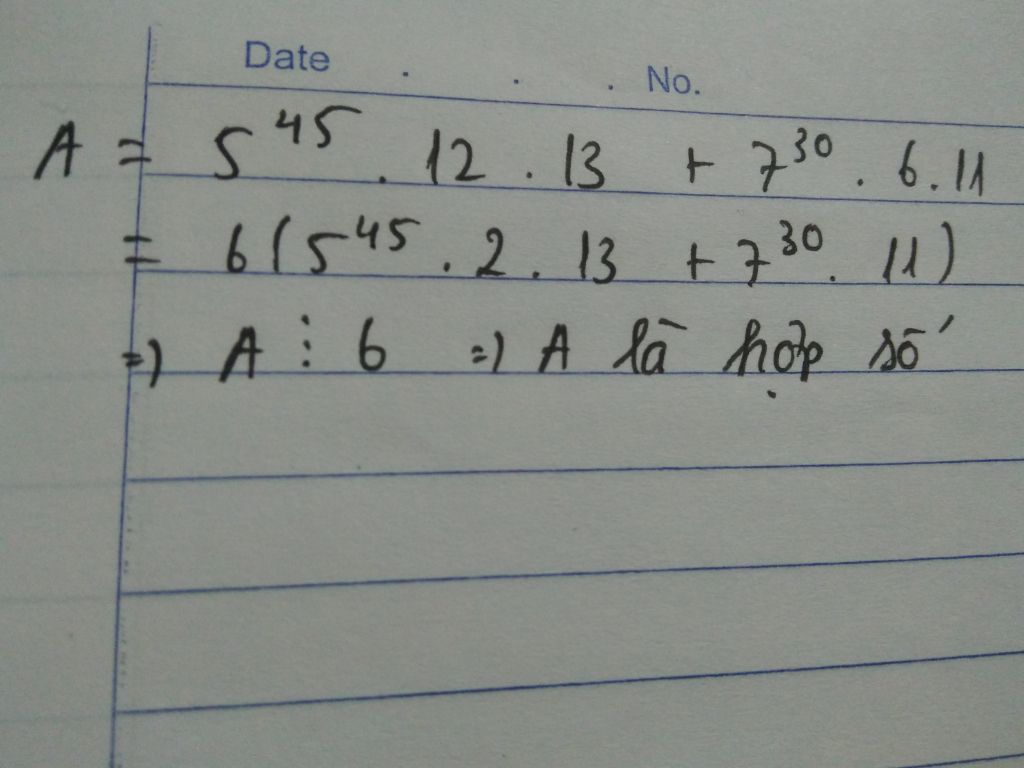 Date . . . No.
A = 5^45 . 12 . 13 + 7^30 . 6 . 11
= 6 ( 5^45 . 2 . 13 + 7^30 . 11 )
=) A ⋮ 6 =) A là hợp số